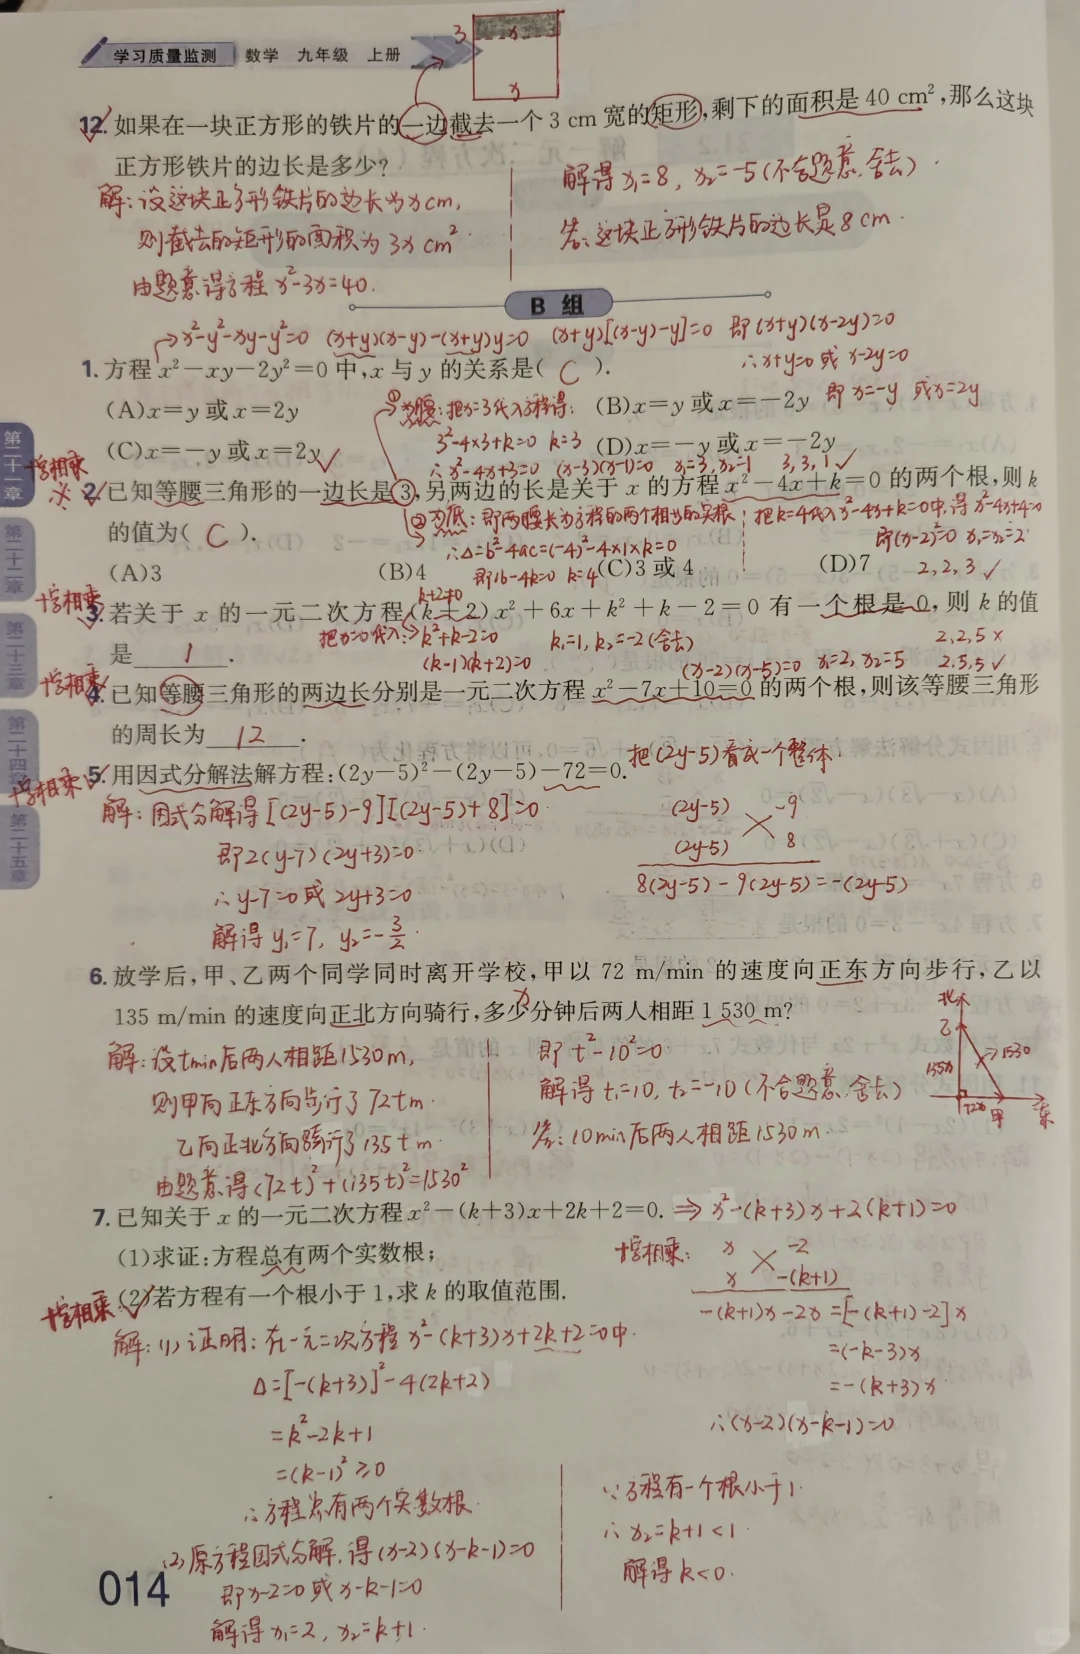 学习质量监测 数学 九年级 上册
3 x
x
12. 如果在一块正方形的铁片的一边截去一个 3 cm 宽的矩形,剩下的面积是 40 cm²,那么这块
正方形铁片的边长是多少?
解:设这块正方形铁片的边长为x cm,
则截去的矩形的面积为 3x cm²
由题意得方程 x²-3x=40.
解得 x₁=8, x₂=-5(不合题意,舍去).
答:这块正方形铁片的边长是8cm.
B 组
→x²-y²-xy-y²=0 (x+y)(x-y)-(x+y)y=0 (x+y)[(x-y)-y]=0 即(x+y)(x-2y)=0
∴x+y=0 或 x-2y=0
1. 方程 x²-xy-2y²=0 中,x 与 y 的关系是( C ).
即 x=-y 或x=2y
(A)x=y 或 x=2y (B)x=y 或 x=-2y
①为腰:把x=3代入方程得:
3²-4×3+k=0 k=3
(C)x=-y 或 x=2y (D)x=-y 或 x=-2y
∴x²-4x+3=0 (x-3)(x-1)=0 x₁=3,x₂=1 3,3,1✓
十字相乘
2. 已知等腰三角形的一边长是 3,另两边的长是关于 x 的方程 x²-4x+k=0 的两个根,则 k
的值为( C ).
②为底:即两腰长为方程的两个相等的实根
∴Δ=b²-4ac=(-4)²-4×1×k=0
即16-4k=0 k=4
把k=4代入x²-4x+k=0中,得 x²-4x+4=0
即(x-2)²=0 x₁=x₂=2
2,2,3 ✓
(A)3 (B)4 (C)3 或 4 (D)7
十字相乘
k+2≠0
3. 若关于 x 的一元二次方程(k+2)x²+6x+k²+k-2=0 有一个根是 0,则 k 的值
是 1 .
把x=0代入→k²+k-2=0 k₁=1,k₂=-2(舍去)
(k-1)(k+2)=0
(x-2)(x-5)=0 x₁=2, x₂=5
2,2,5 ×
2,5,5 ✓
十字相乘
4. 已知等腰三角形的两边长分别是一元二次方程 x²-7x+10=0 的两个根,则该等腰三角形
的周长为 12 .
十字相乘
5. 用因式分解法解方程:(2y-5)²-(2y-5)-72=0.
把(2y-5)看成一个整体.
解:因式分解得[(2y-5)-9][(2y-5)+8]=0
即2(y-7)(2y+3)=0.
∴y-7=0或 2y+3=0
解得 y₁=7, y₂=-3/2.
(2y-5) -9
(2y-5) 8
8(2y-5)-9(2y-5)=-(2y-5)
6. 放学后,甲、乙两个同学同时离开学校,甲以 72 m/min 的速度向正东方向步行,乙以
x
135 m/min 的速度向正北方向骑行,多少分钟后两人相距 1 530 m?
解:设tmin后两人相距1530m,
则甲向正东方向步行了 72tm.
乙向正北方向骑行了135tm.
由题意得(72t)²+(135t)²=1530²
即 t²-10²=0
解得 t₁=10, t₂=-10(不合题意,舍去)
答:10min后两人相距1530m.
北
乙
1530
135x
72x 甲 东
7. 已知关于 x 的一元二次方程 x²-(k+3)x+2k+2=0. ⇒ x²-(k+3)x+2(k+1)=0
(1)求证:方程总有两个实数根;
十字相乘
(2)若方程有一个根小于 1,求 k 的取值范围.
十字相乘: x -2
x -(k+1)
-(k+1)x-2x=[-(k+1)-2]x
=(-k-3)x
=-(k+3)x
∴(x-2)(x-k-1)=0
解:(1)证明:在一元二次方程 x²-(k+3)x+2k+2=0中.
Δ=[-(k+3)]²-4(2k+2)
=k²-2k+1
=(k-1)²≥0
∴方程总有两个实数根.
(2)原方程因式分解,得(x-2)(x-k-1)=0
即x-2=0或 x-k-1=0
解得 x₁=2, x₂=k+1.
∵方程有一个根小于1.
∴x₂=k+1<1.
解得 k<0.
014
第二十一章
第二十二章
第二十三章
第二十四章
第二十五章